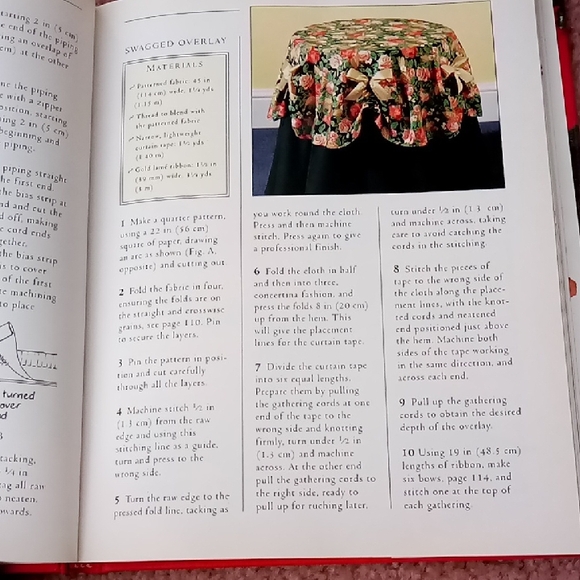 starting 2 in (5 cm)
e end of the piping
ng an overlap of
cm) at the other
ne the piping
e with a zipper
position, starting
ing 2 in (5 cm)
beginning and
piping.
piping straight
he first end.
he bias strip at
nd and cut the
d off, making
e cord ends
gether.
he bias strip
is to cover
of the first
te machining
to place
turned
over
nd
tacking,
¼ in
ag all raw
neaten.
owards.
SWAGGED OVERLAY
MATERIALS
✓ Patterned fabric, 45 in
(114 cm) wide,
(1.15 m)
✓ Thread to blend with
the patterned fabric
✓ Narrow, lightweight
curtain tape, 1¾ yds
(1.40 m)
✓ Gold lamé ribbon, 1½ in
(39 mm) wide,
1 Make a quarter pattern,
using a 22 in (56 cm)
square of paper, drawing
an arc as shown (Fig. A,
opposite) and cutting out.
2 Fold the fabric in four,
ensuring the folds are on
the straight and crosswise
grains, see page 110. Pin
to secure the layers.
3 Pin the pattern in posi-
tion and cut carefully
through all the layers.
4 Machine stitch ½ in
(1.3 cm) from the raw
edge and using this
stitching line as a guide,
turn and press to the
wrong side.
5 Turn the raw edge to the
pressed fold line, tacking as
you work round the cloth.
Press and then machine
stitch. Press again to give
a professional finish.
6 Fold the cloth in half
and then into three,
concertina fashion, and
press the folds 8 in (20 cm)
up from the hem. This
will give the placement
lines for the curtain tape.
7 Divide the curtain tape
into six equal lengths.
Prepare them by pulling
the gathering cords at one
end of the tape to the
wrong side and knotting
firmly, turn under ½ in
(1.3 cm) and machine
across. At the other end
pull the gathering cords to
the right side, ready to
pull up for ruching later,
turn under ½ in (1.3 cm)
and machine across, taking
care to avoid catching the
cords in the stitching.
8 Stitch the pieces of
tape to the wrong side of
the cloth along the place-
ment lines, with the knot-
ted cords and neatened
end positioned just above
the hem. Machine both
sides of the tape working
in the same direction, and
across each end.
9 Pull up the gathering
cords to obtain the desired
depth of the overlay.
10 Using 19 in (48.5 cm)
lengths of ribbon, make
six bows, page 114, and
stitch one at the top of
each gathering.